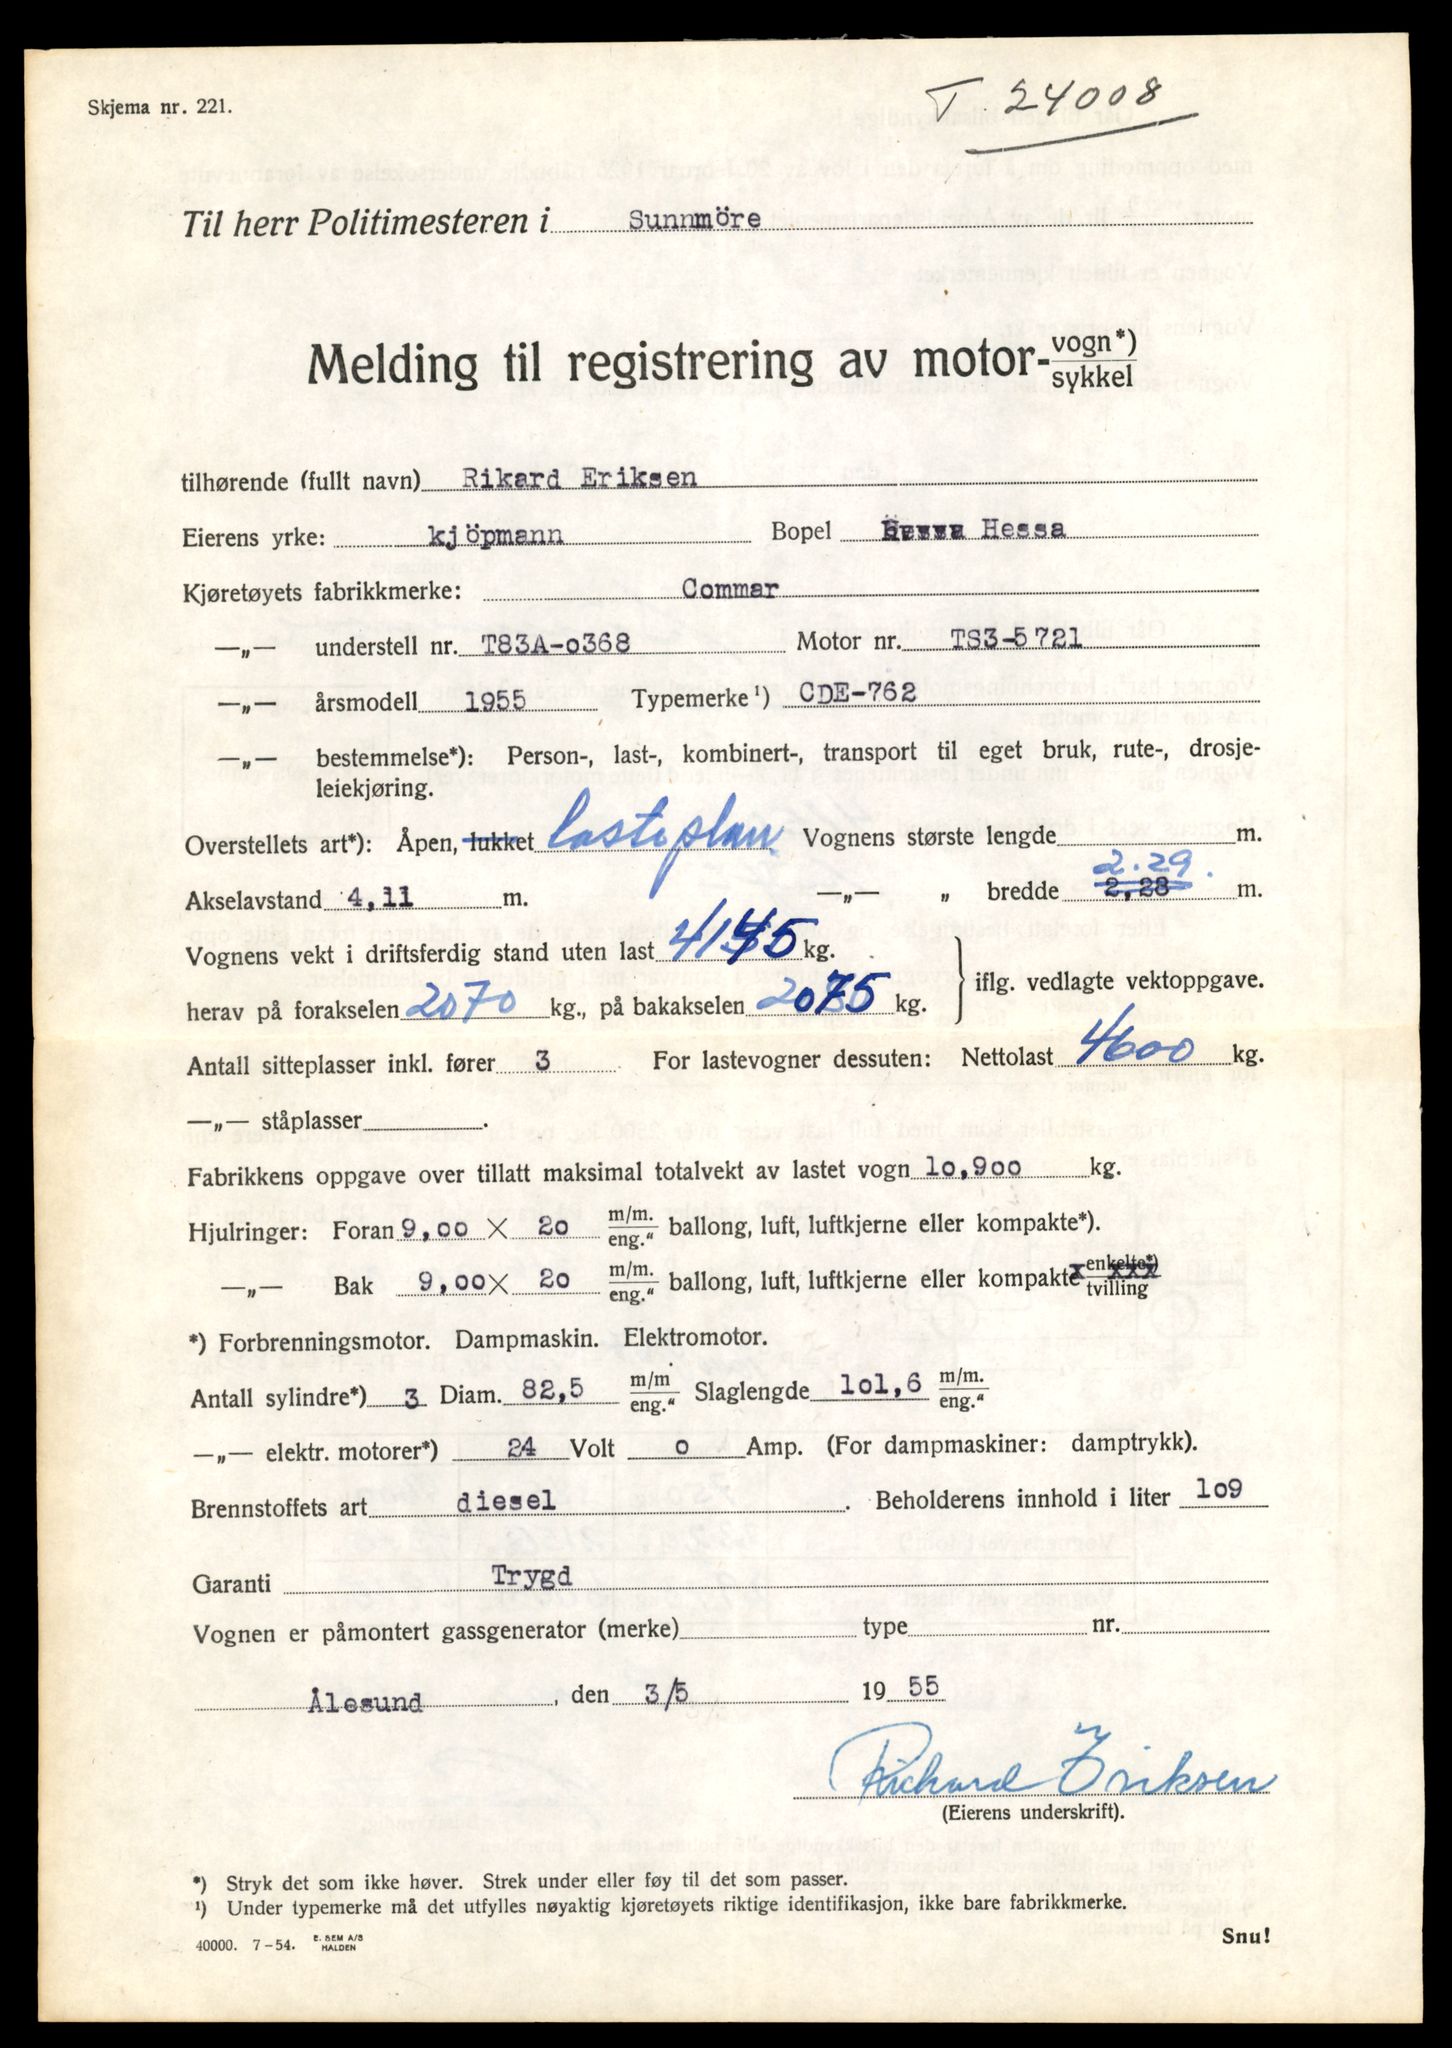 Skjema nr. 221.
T. 24008
Til herr Politimesteren i Sunnmöre
Melding til registrering av motor-vogn*)
sykkel
tilhørende (fullt navn) Rikard Eriksen
Eierens yrke: kjöpmann Bopel Hessa
Kjøretøyets fabrikkmerke: Commar
—„— understell nr. T83A-o368 Motor nr. TS3-5721
—„— årsmodell 1955 Typemerke¹) CDE-762
—„— bestemmelse*): Person-, last-, kombinert-, transport til eget bruk, rute-, drosje-
leiekjøring.
Overstellets art*): Åpen, lukket lasteplan Vognens største lengde m.
2.29.
Akselavstand 4,11 m. —„— „ bredde 2,28 m.
Vognens vekt i driftsferdig stand uten last 4145 kg.
iflg. vedlagte vektoppgave.
herav på forakselen 2070 kg., på bakakselen 2075 kg.
Antall sitteplasser inkl. fører 3 For lastevogner dessuten: Nettolast 4600 kg.
—„— ståplasser .
Fabrikkens oppgave over tillatt maksimal totalvekt av lastet vogn lo,9oo kg.
Hjulringer: Foran 9,oo × 2o m/m. eng." ballong, luft, luftkjerne eller kompakte*).
—„— Bak 9,oo × 2o m/m. eng." ballong, luft, luftkjerne eller kompakte enkelte*) tvilling
*) Forbrenningsmotor. Dampmaskin. Elektromotor.
Antall sylindre*) 3 Diam. 82,5 m/m eng." Slaglengde lol,6 m/m. eng."
—„— elektr. motorer*) 24 Volt o Amp. (For dampmaskiner: damptrykk).
Brennstoffets art diesel . Beholderens innhold i liter lo9
Garanti Trygd
Vognen er påmontert gassgenerator (merke) type nr.
Ålesund , den 3/5 19 55
Richard Eriksen
(Eierens underskrift).
*) Stryk det som ikke høver. Strek under eller føy til det som passer.
¹) Under typemerke må det utfylles nøyaktig kjøretøyets riktige identifikasjon, ikke bare fabrikkmerke.
40000. 7-54. E. SEM A/S HALDEN
Snu!